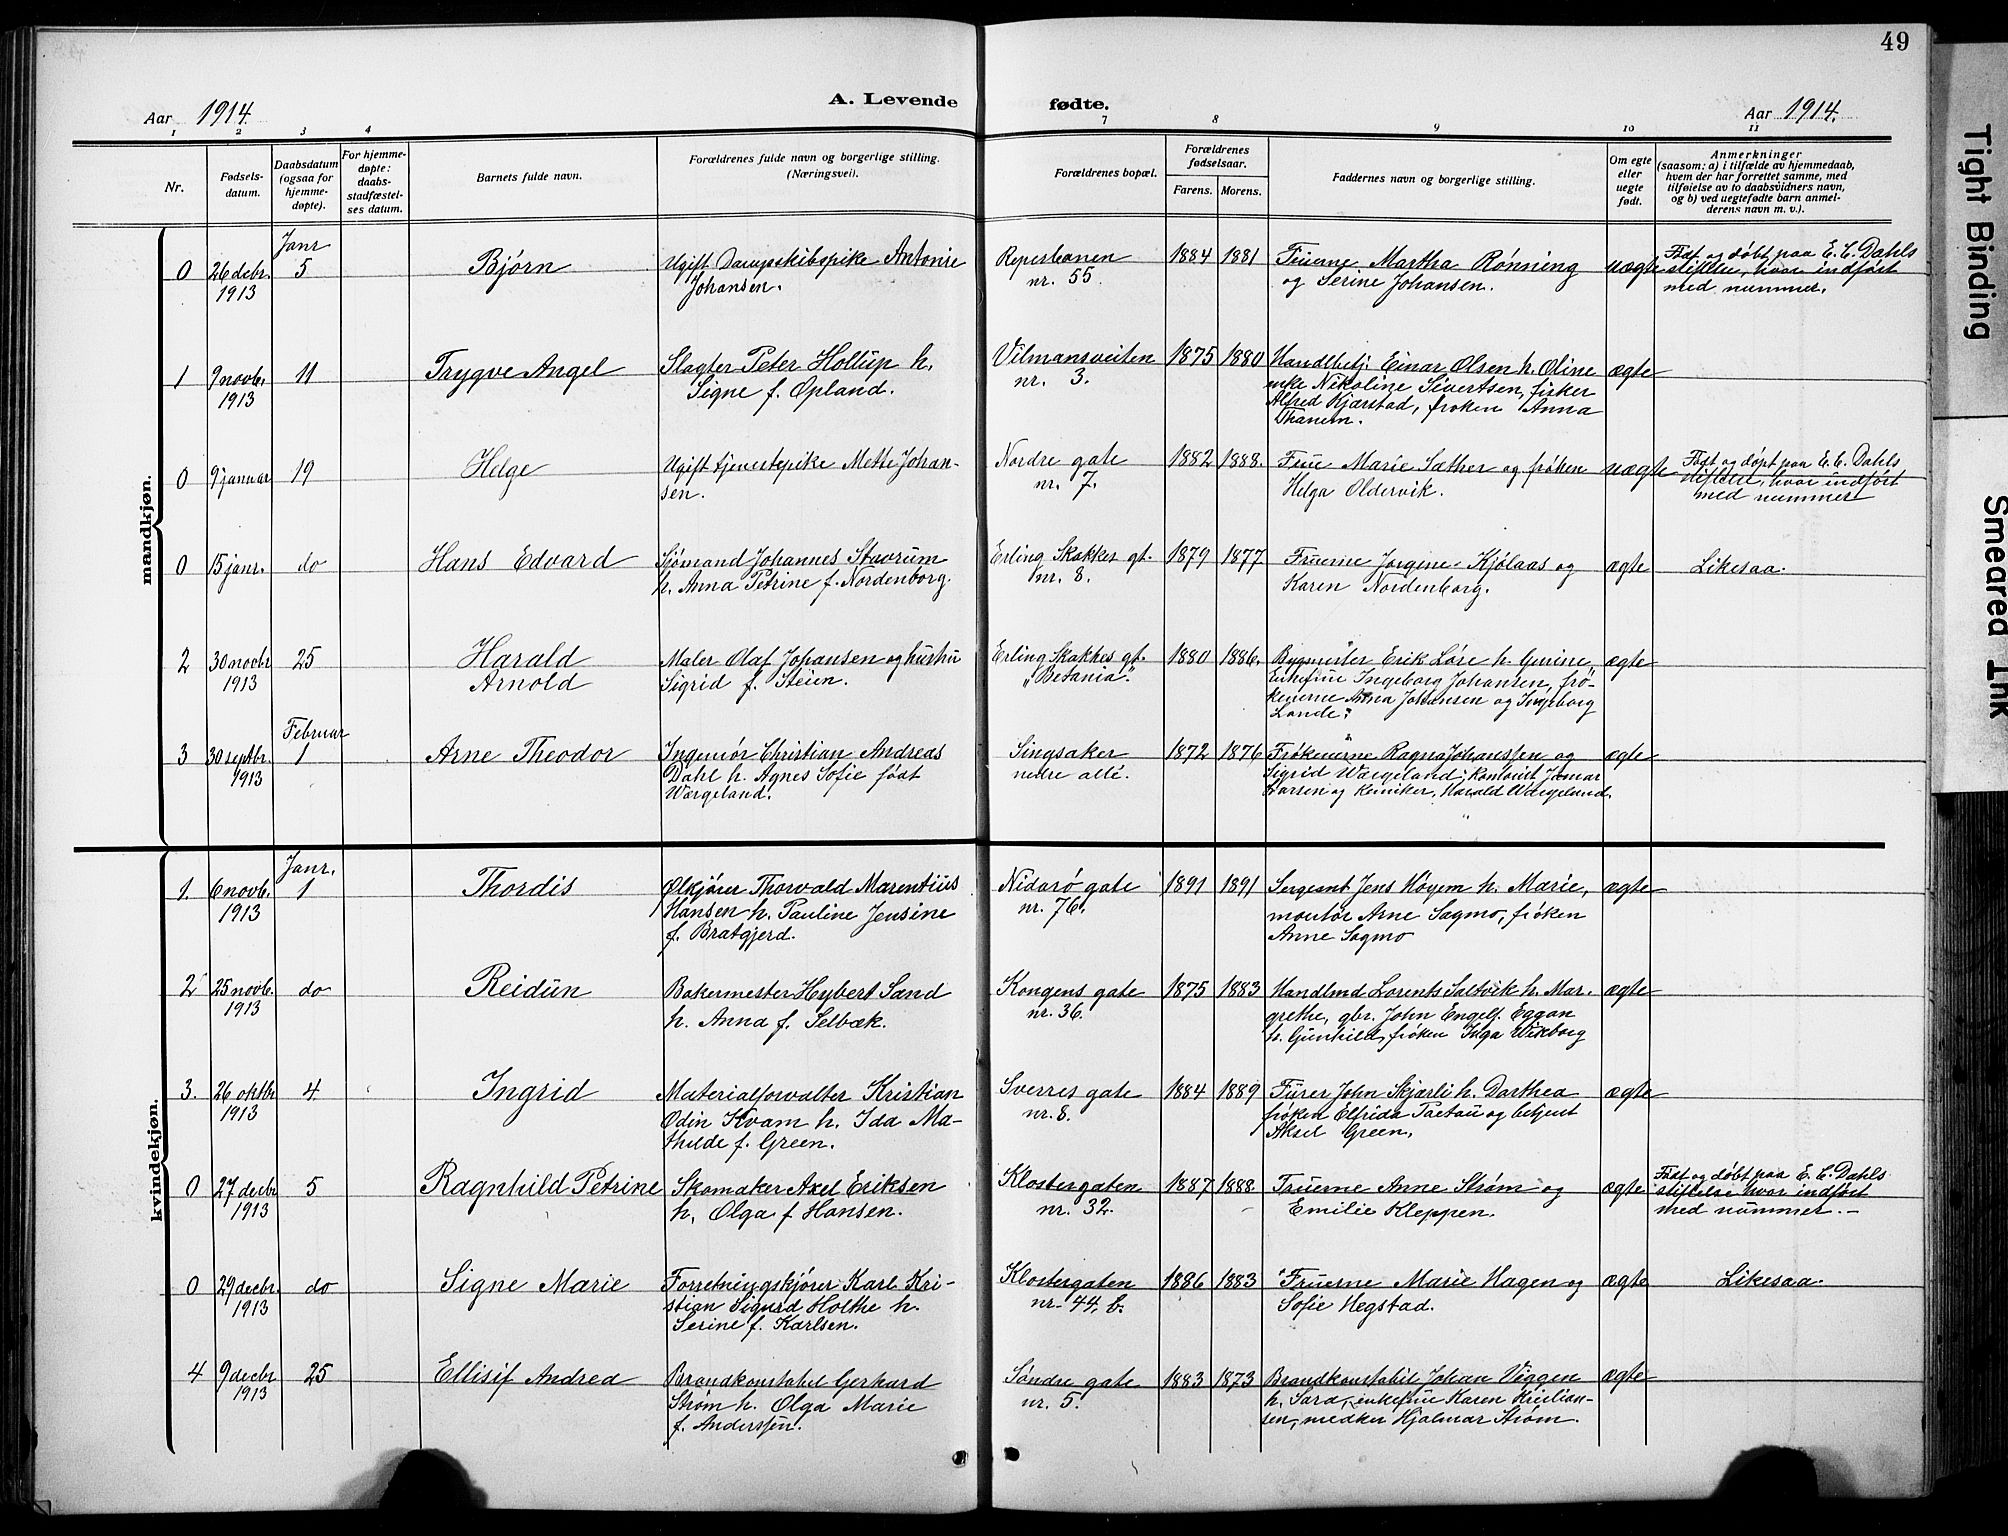 49
Aar 1914. A. Levende fødte. Aar 1914.
1 2 3 4 7 8 9 10 11
Nr.
Fødsels-
datum.
Daabsdatum
(ogsaa for
hjemme-
døpte).
For hjemme-
døpte:
daabs-
stadfæstel-
ses datum.
Barnets fulde navn.
Forældrenes fulde navn og borgerlige stilling.
(Næringsvei).
Forældrenes bopæl.
Forældrenes
fødselsaar.
Farens. Morens.
Faddernes navn og borgerlige stilling.
Om egte
eller
uegte
født.
Anmerkninger
(saasom: a) i tilfælde av hjemmedaab,
hvem der har forrettet samme, med
tilføielse av to daabsvidners navn,
og b) ved uegtefødte barn anmel-
derens navn m. v.).
mandkjøn.
Janr
0 26 debr. 5 Bjørn Ugift Antonie Reperbanen 1884 1881 Fruerne Martha Rønning uægte Født og døbt paa E. C. Dahls
1913 Johansen. nr. 55. og Serine Johansen. stiftelse, hvor indført
med nummer.
1 9 novb. 11 Trygve Angel Slagter Peter Hollup h. Vilmansveiten 1875 1880 Handlbetj. Einar Olsen h. Oline ægte
1913 Signe f. Opland. nr. 3. enke Nikoline Sivertsen, fisker
Alfred Kjærstad, frøken Anna
Thanem.
0 9 januar 19 Helge Ugift tjenestepike Mette Johan- Nordre gate 1882 1888. Frue Marie Sæther og frøken uægte Født og døpt paa E. C. Dahls
sen. nr. 7. Helga Oldervik. stiftelse, hvor indført
med nummer
0 15 janr. do Hans Edvard Sjømand Johannes Stavrum Erling Skakkes gt. 1879 1877 Fruerne Jørgene Kjølaas og ægte Likesaa.
h. Anna Petrine f. Nordenborg. nr. 8. Karen Nordenborg.
2 30 novbr 25 Harald Maler Olaf Johansen og hustru Erling Skakkes gt. 1880 1886. Bygmester Erik Løre h. Gurine, ægte
1913 Arnold Sigrid f. Steien. „Betania“. Enkefrue Ingeborg Johansen, frø-
kenerne Anna Johansen og Ingeborg
Lande.
Februar
3 30 septbr. 1 Arne Theodor Ingeniør Christian Andreas Singsaker 1872 1876 Frøkenerne Ragna Johanssen og ægte
1913 Dahl h. Agnes Sofie født nedre allé. Sigrid Wærgeland, kontorist
Wærgeland. Larsen og kemiker, Harald Wærgeland.
kvindekjøn.
Janr.
1. 6 novb. 1 Thordis Ølkjører Thorvald Marentius Nidarø gate 1891 1891 Sergeant Jens Høyem h. Marie, ægte
1913 Hansen h. Pauline Jensine nr. 76. montør Arne Sagmo, frøken
f. Bratgjerd. Anne Sagmo
2 25 novb. do Reidun Bakermester Hybert Sand Kongens gate 1875 1883 Handlmd Lorents Saltvik h. Mar- ægte
1913 h. Anna f. Selbæk. nr. 36. grethe, gbr. John Engelf. Eggan
h. Gunhild, frøken Inga Wikborg
3. 26 oktbr 4 Ingrid Materialforvalter Kristian Sverres gate 1884 1889 Furer John Skjærli h. Dorthea ægte
1913 Odin Kvam h. Ida Ma- nr. 8. frøken Elfrida Paetau og betjent
thilde f. Green. Aksel Green.
0 27 decbr 5 Ragnhild Petrine Skomaker Axel Eriksen Klostergaten 1887 1888. Fruerne Anne Strøm og ægte Født og døbt paa E. C. Dahls
1913 h. Olga f Hansen. nr. 32. Emilie Kleppen. stiftelse hvor indført
med nummer. -
0 29 decbr. do Signe Marie Forretningskjører Karl Kri- Klostergaten 1886 1883 Fruerne Marie Hagen og ægte Likesaa.
1913 stian Sigurd Holthe h. nr. 44, b. Sofie Hegstad.
Serine f. Karlsen.
4 9 decbr 25 Ellisif Andrea Brandkonstabel Gerhard Søndre gate 1883 1873 Brandkonstabel Johan Viggen ægte
1913 Strøm h. Olga Marie nr. 5. h. Sara, enkefrue Karen Kristian-
f. Anderssen. sen, Hjalmar Strøm.
Tight Binding
Smeared Ink